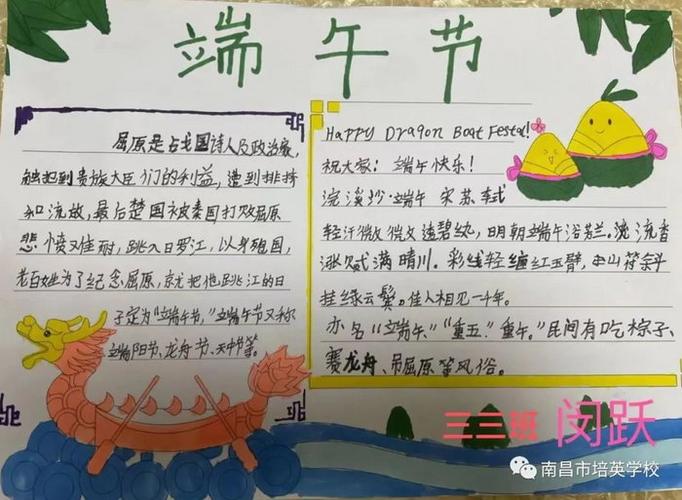 端午节
屈原是占戈国诗人及政治家,
触犯到贵族大臣们的利益,遭到排挤
和流放,最后楚国被秦国打败屈原
悲愤又难耐,跳入日罗江,以身殉国,
老百姓为了纪念屈原,就把他跳江的日
子定为“端午节,”端午节又称
端阳节、龙舟节、天中节等。
Happy Dragon Boat Festal!
祝大家:端午快乐!
浣溪沙·端午 宋苏轼
轻汗微微透碧纨,明朝端午浴芳兰。流香
涨腻满晴川。彩线轻缠红玉臂,小符斜
挂绿云鬓。佳人相见一千年。
亦名“端午、”“重五.”重午。”民间有吃粽子、
赛龙舟、吊屈原等风俗。
三三班 闵跃
南昌市培英学校